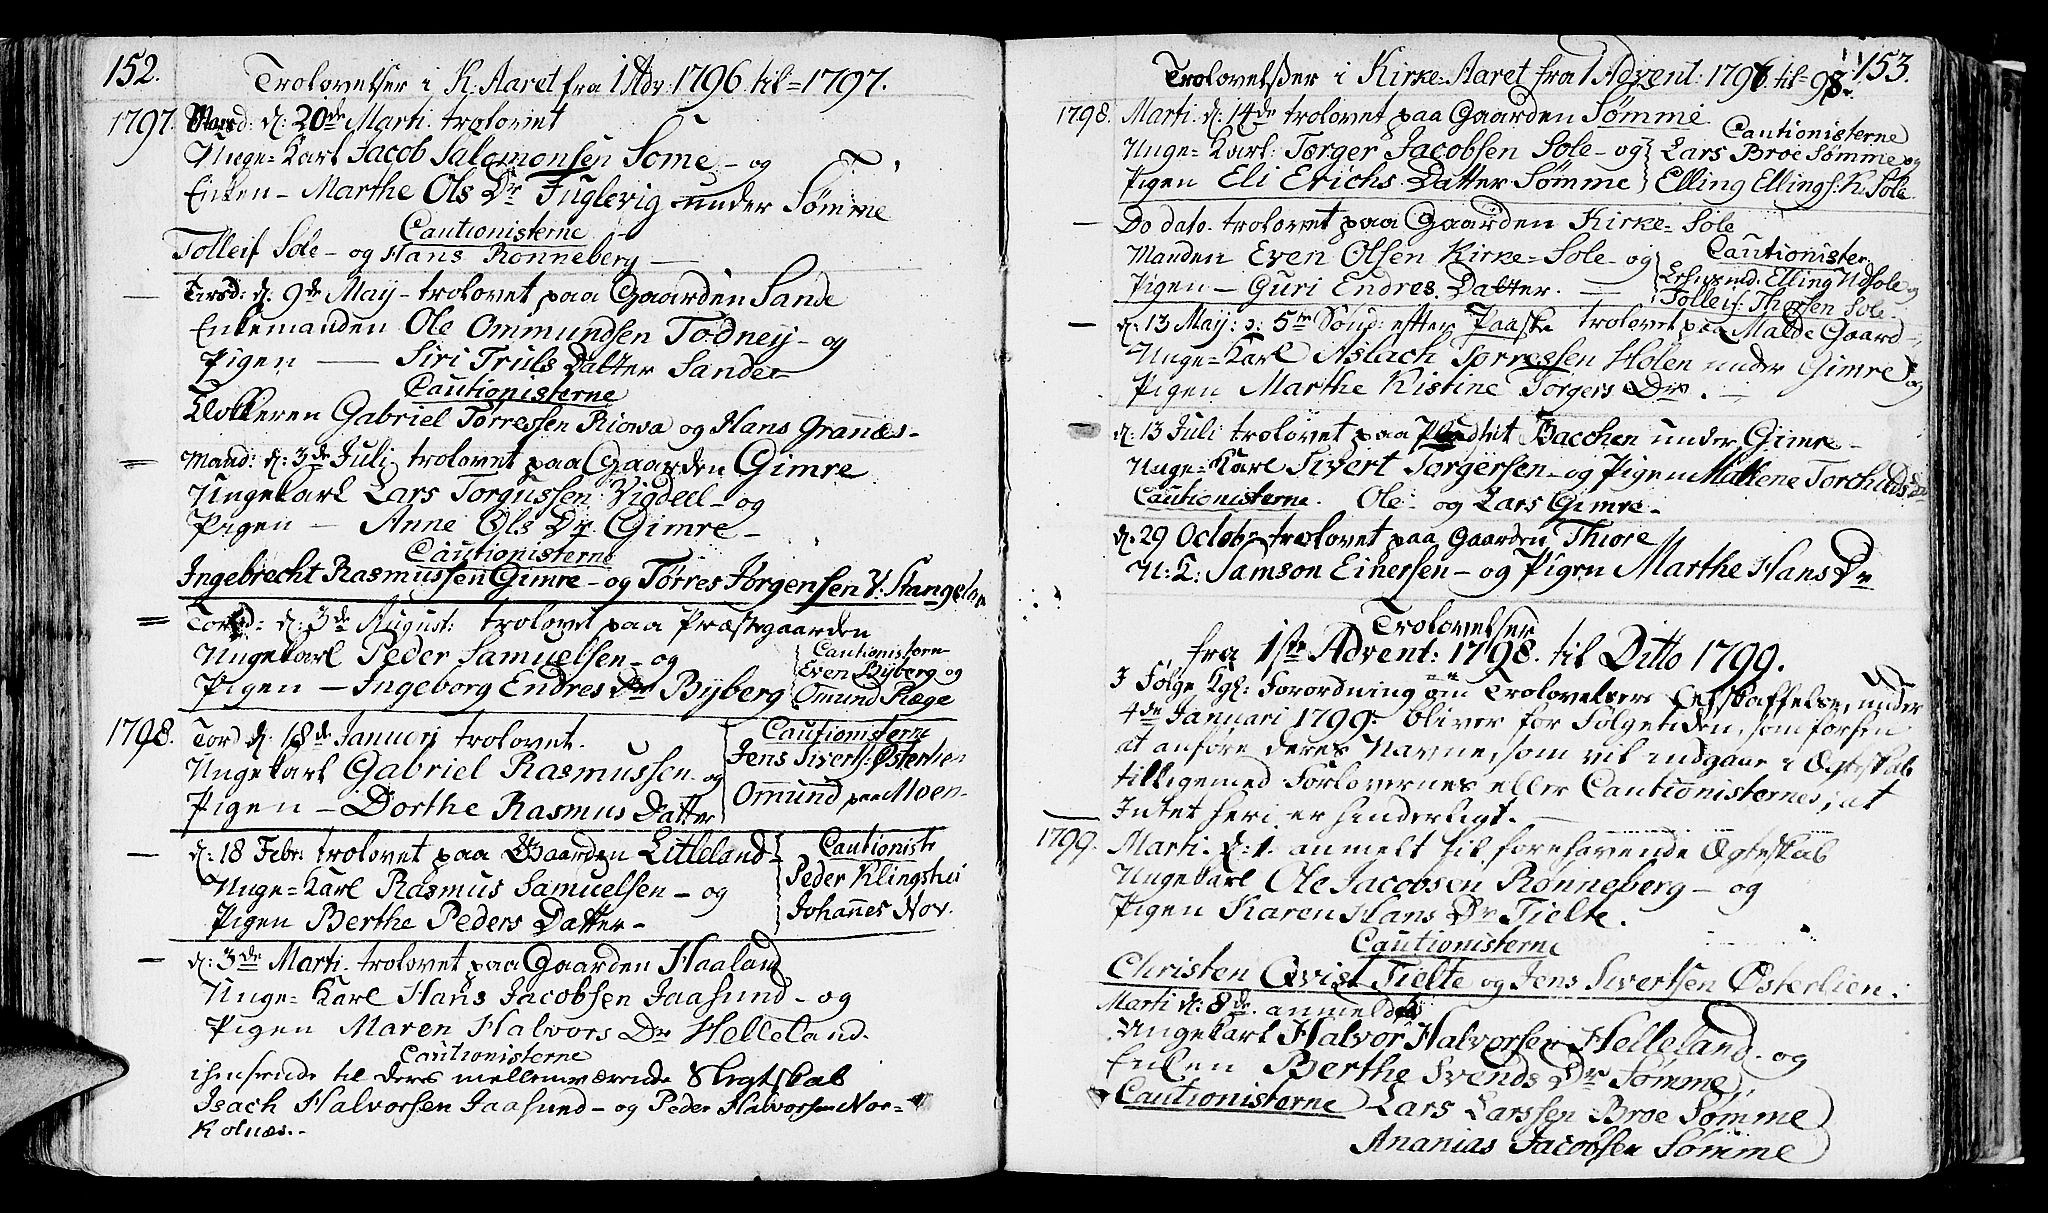 152.
Trolovelser i K. Aaret fra 1 Adv: 1796 til = 1797.
1797. Mand: d: 20de Marti trolovet
Unge=Karl Jacob Salomonsen Some - og
Enken - Marthe Ols Dr Fuglevig under Sømme
Cautionisterne
Tolleif Sole - og Hans Rønneberg
Tirsd: d. 9de Maij - trolovet paa Gaarden Sande
Enkemanden Ole Ommundsen Todneij - og
Pigen - Siri Truls Datter Sande
Cautionisterne
Klokkeren Gabriel Tørressen Riowa og Hans Granæs -
Mand: d: 3de Juli trolovet paa Gaarden Gimre
Ungekarl Lars Torgussen Vigdeel - og
Pigen - Anne Ols Dr. Gimre -
Cautionisterne
Ingebrecht Rasmussen Gimre - og Tørres Jørgensen V: Stangelan
Tors: d: 3de August: trolovet paa Præstegaarden
Ungekarl Peder Samuelsen - og
Pigen - Ingeborg Endres Dr Bÿberg
Cautionistern
Even Bÿberg og
Omund Ræge
1798. Tord d. 18de Januari trolovet.
Ungekarl Gabriel Rasmussen - og
Pigen - Dorthe Rasmus Datter
Cautionistern
Jens Siverts: Østerlien
Omund paa Moen -
d: 18 Febr: trolovet paa Gaarden Litleland -
Unge=Karl Rasmus Samuelsen - og
Pigen Berthe Peders Datter -
Cautionist:
Peder Klingshei
Johannes Nor.
d: 3de Marti trolovet paa Gaarden Haaland
Unge=Karl Hans Jacobsen Jaasund - og
Pigen Maren Halvors Dr Helleland.
Cautionisterne
ihenseende til deres mellemværende Slegtskab
Isach Halvorsen Jaasund - og Peder Halvorsen Nor=
Kolnæs. -
153.
Trolovelser i Kirke=Aaret fra 1 Advent: 1797 til 98.
1798. Marti d: 14de trolovet paa Gaarden Sømme
Unge=Karl: Torger Jacobsen Sole - og
Pigen Eli Erichs Datter Sømme
Cautionisterne
Lars Broe Sømme og
Elling Ellings: K. Sole
Do dato. trolovet paa Gaarden Kirke=Sole
Manden Even Olsen Kirke=Sole - og
Pigen - Guri Endres Datter. -
Cautionister
Lehnsmd. Elling Udsole og
Tolleif Thorsen Sole.
d: 13 Maij: ɔ: 5te Sønd: efter Paaske trolovet paa Malde Gaard -
Unge=Karl Aslach Torressen Holen under Gimre og
Pigen Marthe Kistine Torgers Dr. -
d: 13 Juli trolovet paa Pladset Bacchen under Gimre -
Unge=Karl Sivert Torgersen - og Pigen Mallene Torchilds Dr
Cautionisterne. Ole - og Lars Gimre -
d: 29 Octobr trolovet paa Gaarden Thiore
U: K: Samson Einersen - og Pigen Marthe Hans Dr
Trolovelser
fra 1ste Advent: 1798. til Ditto 1799.
I Følge Kgl: Forordning om Trolovelsers Afskaffelse, under
4de Januari 1799. bliver for Følgetiden, som forhen
at anføre deres Navne, som vil indgaae i Ægteskab
tilligemed Forlovernes eller Cautionisternes; at
Intet heri er hinderligt. -
1799. Marti. d: 1. anmelt til forehavende Ægteskab
Ungekarl Ole Jacobsen Rønneberg - og
Pigen Karen Hans Dr Tielte.
Cautionisterne
Christen Qvist Tielte og Jens Sivertsen Østerlien.
Marti d: 8de anmeldt
Ungekarl Halvor Halvorsen Helleland - og
Enken Berthe Svends Dr Sømme,
Cautionisterne Lars Larssen Broe Sømme
Ananias Jacobsen Sømme